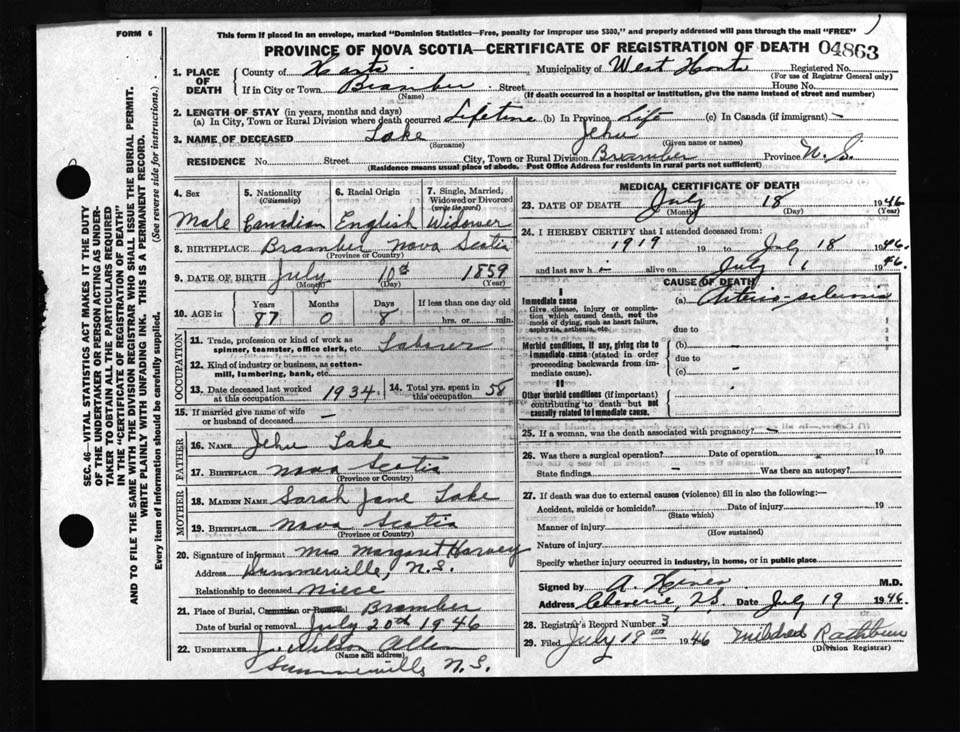 FORM 6
This form if placed in an envelope, marked "Dominion Statistics—Free, penalty for improper use $300," and properly addressed will pass through the mail "FREE"
PROVINCE OF NOVA SCOTIA—CERTIFICATE OF REGISTRATION OF DEATH 04863
1. PLACE OF DEATH
County of Hants Municipality of West Hants Registered No.
(For use of Registrar General only)
If in City or Town Bramber Street House No.
(Name) (If death occurred in a hospital or institution, give the name instead of street and number)
2. LENGTH OF STAY (in years, months and days)
(a) In City, Town or Rural Division where death occurred Lifetime (b) In Province Life (c) In Canada (if immigrant) —
3. NAME OF DECEASED Lake Jehu
(Surname) (Given name or names)
RESIDENCE No. Street City, Town or Rural Division Bramber Province N.S.
(Residence means usual place of abode. Post Office Address for residents in rural parts not sufficient)
4. Sex Male
5. Nationality (Citizenship) Canadian
6. Racial Origin English
7. Single, Married, Widowed or Divorced (write the word) Widower
8. BIRTHPLACE Bramber Nova Scotia
(Province or Country)
9. DATE OF BIRTH July 10th 1859
(Month) (Day) (Year)
10. AGE in Years Months Days If less than one day old
87 0 8 hrs. or min.
OCCUPATION
11. Trade, profession or kind of work as spinner, teamster, office clerk, etc. Laborer
12. Kind of industry or business, as cotton-mill, lumbering, bank, etc.
13. Date deceased last worked at this occupation 1934
14. Total yrs. spent in this occupation 58
15. If married give name of wife or husband of deceased —
FATHER
16. NAME Jehu Lake
17. BIRTHPLACE Nova Scotia
(Province or Country)
MOTHER
18. MAIDEN NAME Sarah Jane Lake
19. BIRTHPLACE Nova Scotia
(Province or Country)
20. Signature of informant Mrs Margaret Harvey
Address Summerville, N.S.
Relationship to deceased niece
21. Place of Burial, Cremation or Removal Bramber
Date of burial or removal July 20th 1946
22. UNDERTAKER J. Wilson Allen
(Name and address)
Summerville N.S.
MEDICAL CERTIFICATE OF DEATH
23. DATE OF DEATH July 18 1946
(Month) (Day) (Year)
24. I HEREBY CERTIFY that I attended deceased from:
1919 19 to July 18 1946.
and last saw h i alive on July 1 1946.
CAUSE OF DEATH
I
Immediate cause
Give disease, injury or complication which caused death, not the mode of dying, such as heart failure, asphyxia, asthenia, etc.
(a) Arterio-sclerosis
due to
Morbid conditions, if any, giving rise to immediate cause (stated in order proceeding backwards from immediate cause).
(b) -
due to
(c) -
II
Other morbid conditions (if important) contributing to death but not causally related to immediate cause.
25. If a woman, was the death associated with pregnancy? —
26. Was there a surgical operation? Date of operation 19
State findings — Was there an autopsy?
27. If death was due to external causes (violence) fill in also the following:—
Accident, suicide or homicide? Date of injury 19
(State which)
Manner of injury
(How sustained)
Nature of injury
Specify whether injury occurred in industry, in home, or in public place
Signed by M.D.
Address Cheverie, N.S. Date July 19 1946.
28. Registrar's Record Number 3
29. Filed July 19th 1946 Mildred Rathburn
(Division Registrar)
SEC. 46—VITAL STATISTICS ACT MAKES IT THE DUTY
OF THE UNDERTAKER OR PERSON ACTING AS UNDER-
TAKER TO OBTAIN ALL THE PARTICULARS REQUIRED
IN THE "CERTIFICATE OF REGISTRATION OF DEATH"
AND TO FILE THE SAME WITH THE DIVISION REGISTRAR WHO SHALL ISSUE THE BURIAL PERMIT.
WRITE PLAINLY WITH UNFADING INK. THIS IS A PERMANENT RECORD.
Every item of information should be carefully supplied. (See reverse side for instructions.)